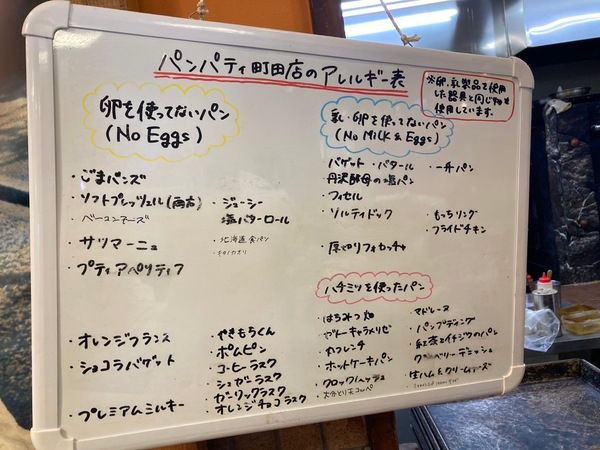 パンパティ町田店のアレルギー表
※卵、乳製品を使用
した器具と同じ物を
使用しています。
卵を使ってないパン
(No Eggs)
・ごまパンズ
・ソフトプレッツェル(両方)
・ベーコンチーズ
・サツマーニュ
・プティアペリティフ
・ジューシー
塩バターロール
・北海道食パン
・キタノカオリ
・オレンジフランス
・ショコラバゲット
・プレミアムミルキー
・やきもちくん
・ポムピン
・コーヒーラスク
・シュガーラスク
・ガーリックラスク
・オレンジチョコラスク
乳・卵を使ってないパン
(No Milk & Eggs)
・バゲット ・バタール ・一升パン
・丹沢酵母の塩パン
・フィセル
・ソルティドッグ ・もっちリング
・フライドチキン
・厚切りフォカッチャ
ハチミツを使ったパン
・はちみつ
・カフレンチ
・ホットケーキパン
・クロックムッシュ
・マドレーヌ
・パンプディング
・紅茶とイチジクのパン
・生ハム&クリームチーズ